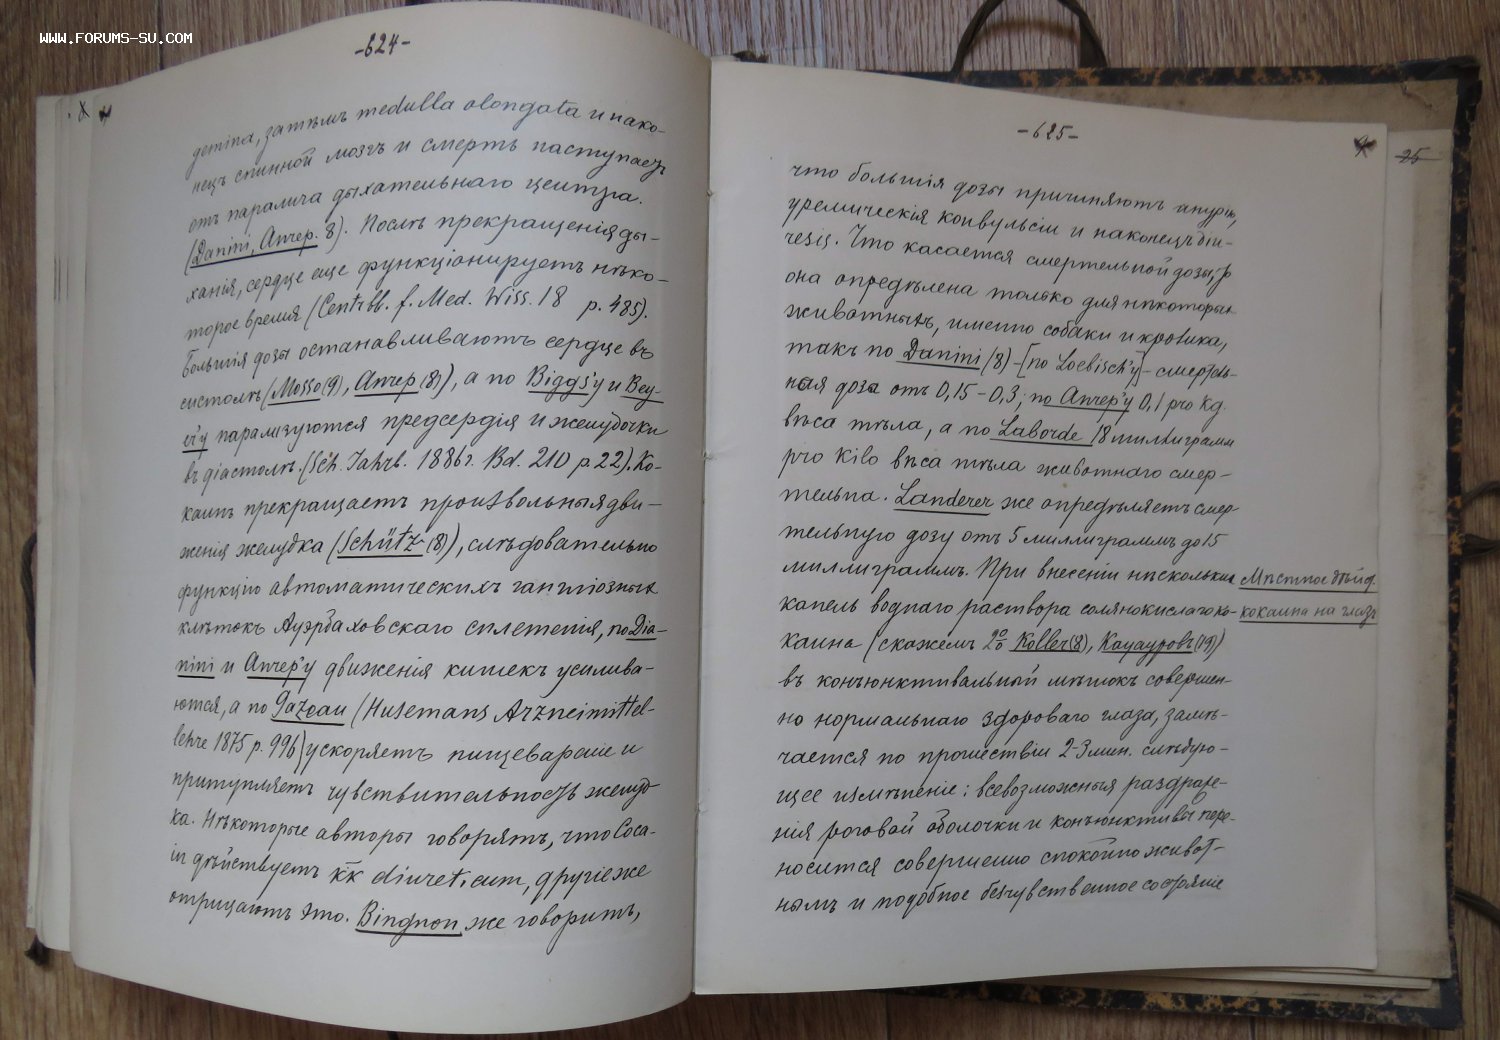 WWW.FORUMS-SU.COM
-624-
gemina, затѣмъ medulla olongata и нако-
нецъ спинной мозгъ и смерть наступаетъ
отъ паралича дыхательнаго центра.
(Danini, Anrep. 8). Послѣ прекращенія ды-
ханія, сердце еще функціонируетъ нѣко-
торое время (Centrbl. f. Med. Wiss. 18 p. 485).
Большія дозы останавливаютъ сердце въ
систолѣ (Mosso (9), Anrep (8)), а по Biggs'y и Bey-
er'y парализуются предсердія и желудочки
въ діастолѣ. (Sch. Jahrb. 1886 г. Bd. 210 p. 22). Ко-
каинъ прекращаетъ произвольныя дви-
женія желудка (Schütz (8)), слѣдовательно
функцію автоматическихъ гангліозныхъ
клѣтокъ Ауэрбаховскаго сплетенія, по Dia-
nini и Anrep'y движенія кишекъ усилива-
ются, а по Gazeau (Husemans Arzneimittel-
lehre 1875 p. 996) ускоряетъ пищевареніе и
притупляетъ чувствительность желуд-
ка. Нѣкоторые авторы говорятъ, что Coca-
in дѣйствуетъ какъ diureticum, другіе же
отрицаютъ это. Bingnon же говоритъ,
-625-
25
что большія дозы причиняютъ анурію,
уремическія конвульсіи и наконецъ diu-
resis. Что касается смертельной дозы, то
она опредѣлена только для нѣкоторыхъ
животныхъ, именно собаки и кролика,
такъ по Danini (8) - [по Loebisch'y] - смертель-
ная доза отъ 0,15 - 0,3; по Anrep'y 0,1 pro Kg.
вѣса тѣла, а по Laborde 18 миллиграмм
pro Kilo вѣса тѣла животнаго смер-
тельна. Landerer же опредѣляетъ смер
тельную дозу отъ 5 миллиграммъ до 15
миллиграммъ. При внесеніи нѣсколькихъ
капель воднаго раствора солянокислаго ко-
каина (скажемъ 2% Koller (8), Кацауровъ (19))
въ конъюнктивальный мѣшокъ совершен-
но нормальнаго здороваго глаза, замѣ-
чается по прошествіи 2-3 мин. слѣдую-
щее измѣненіе: всевозможныя раздраже-
нія роговой оболочки и конъюнктивы пере-
носится совершенно спокойно живот-
нымъ и подобное безчувственное состояніе
Мѣстное дѣйст.
кокаина на глазъ